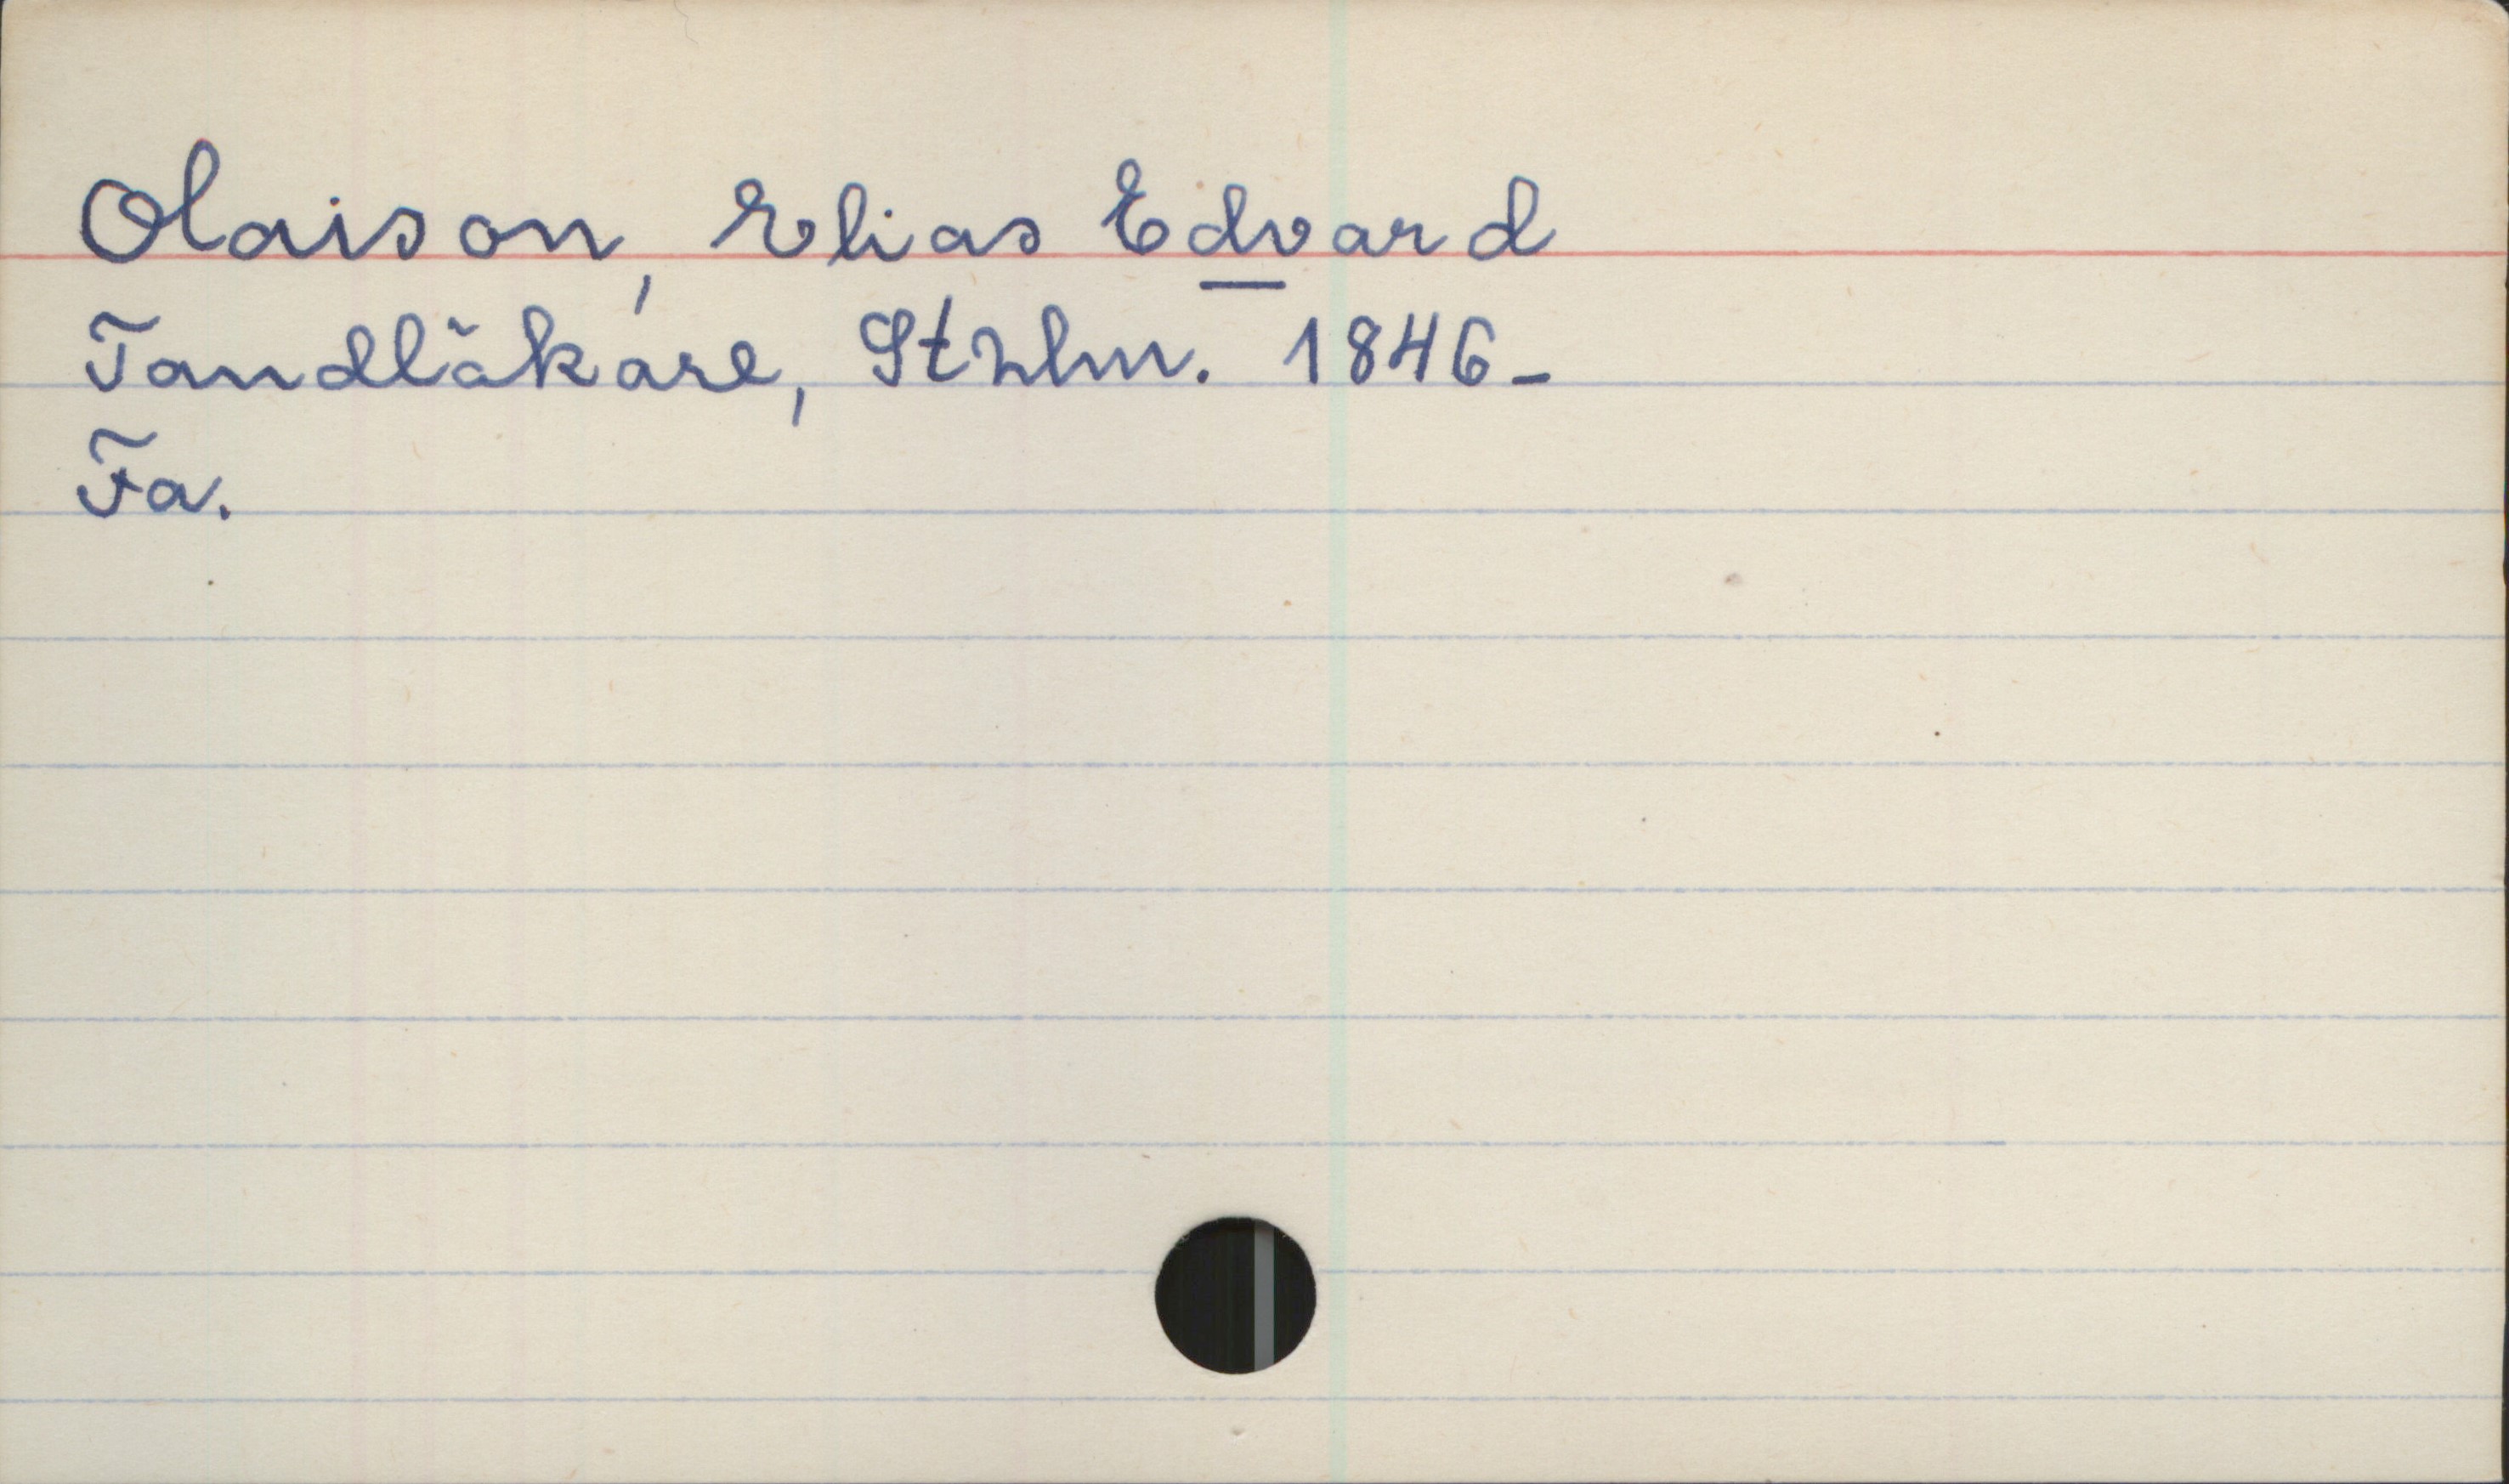 Olaison, Elias Edvard
Tandläkare, Sthlm. 1846-
Fa.